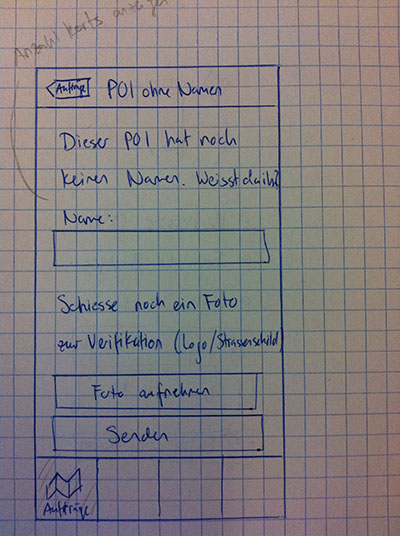 Anzahl Korts anzeigen
Aufträge
POI ohne Namen
Dieser POI hat noch
keinen Namen. Weisst du ihn?
Name:
Schiesse noch ein Foto
zur Verifikation (Logo/Strassenschild)
Foto aufnehmen
Senden
Aufträge